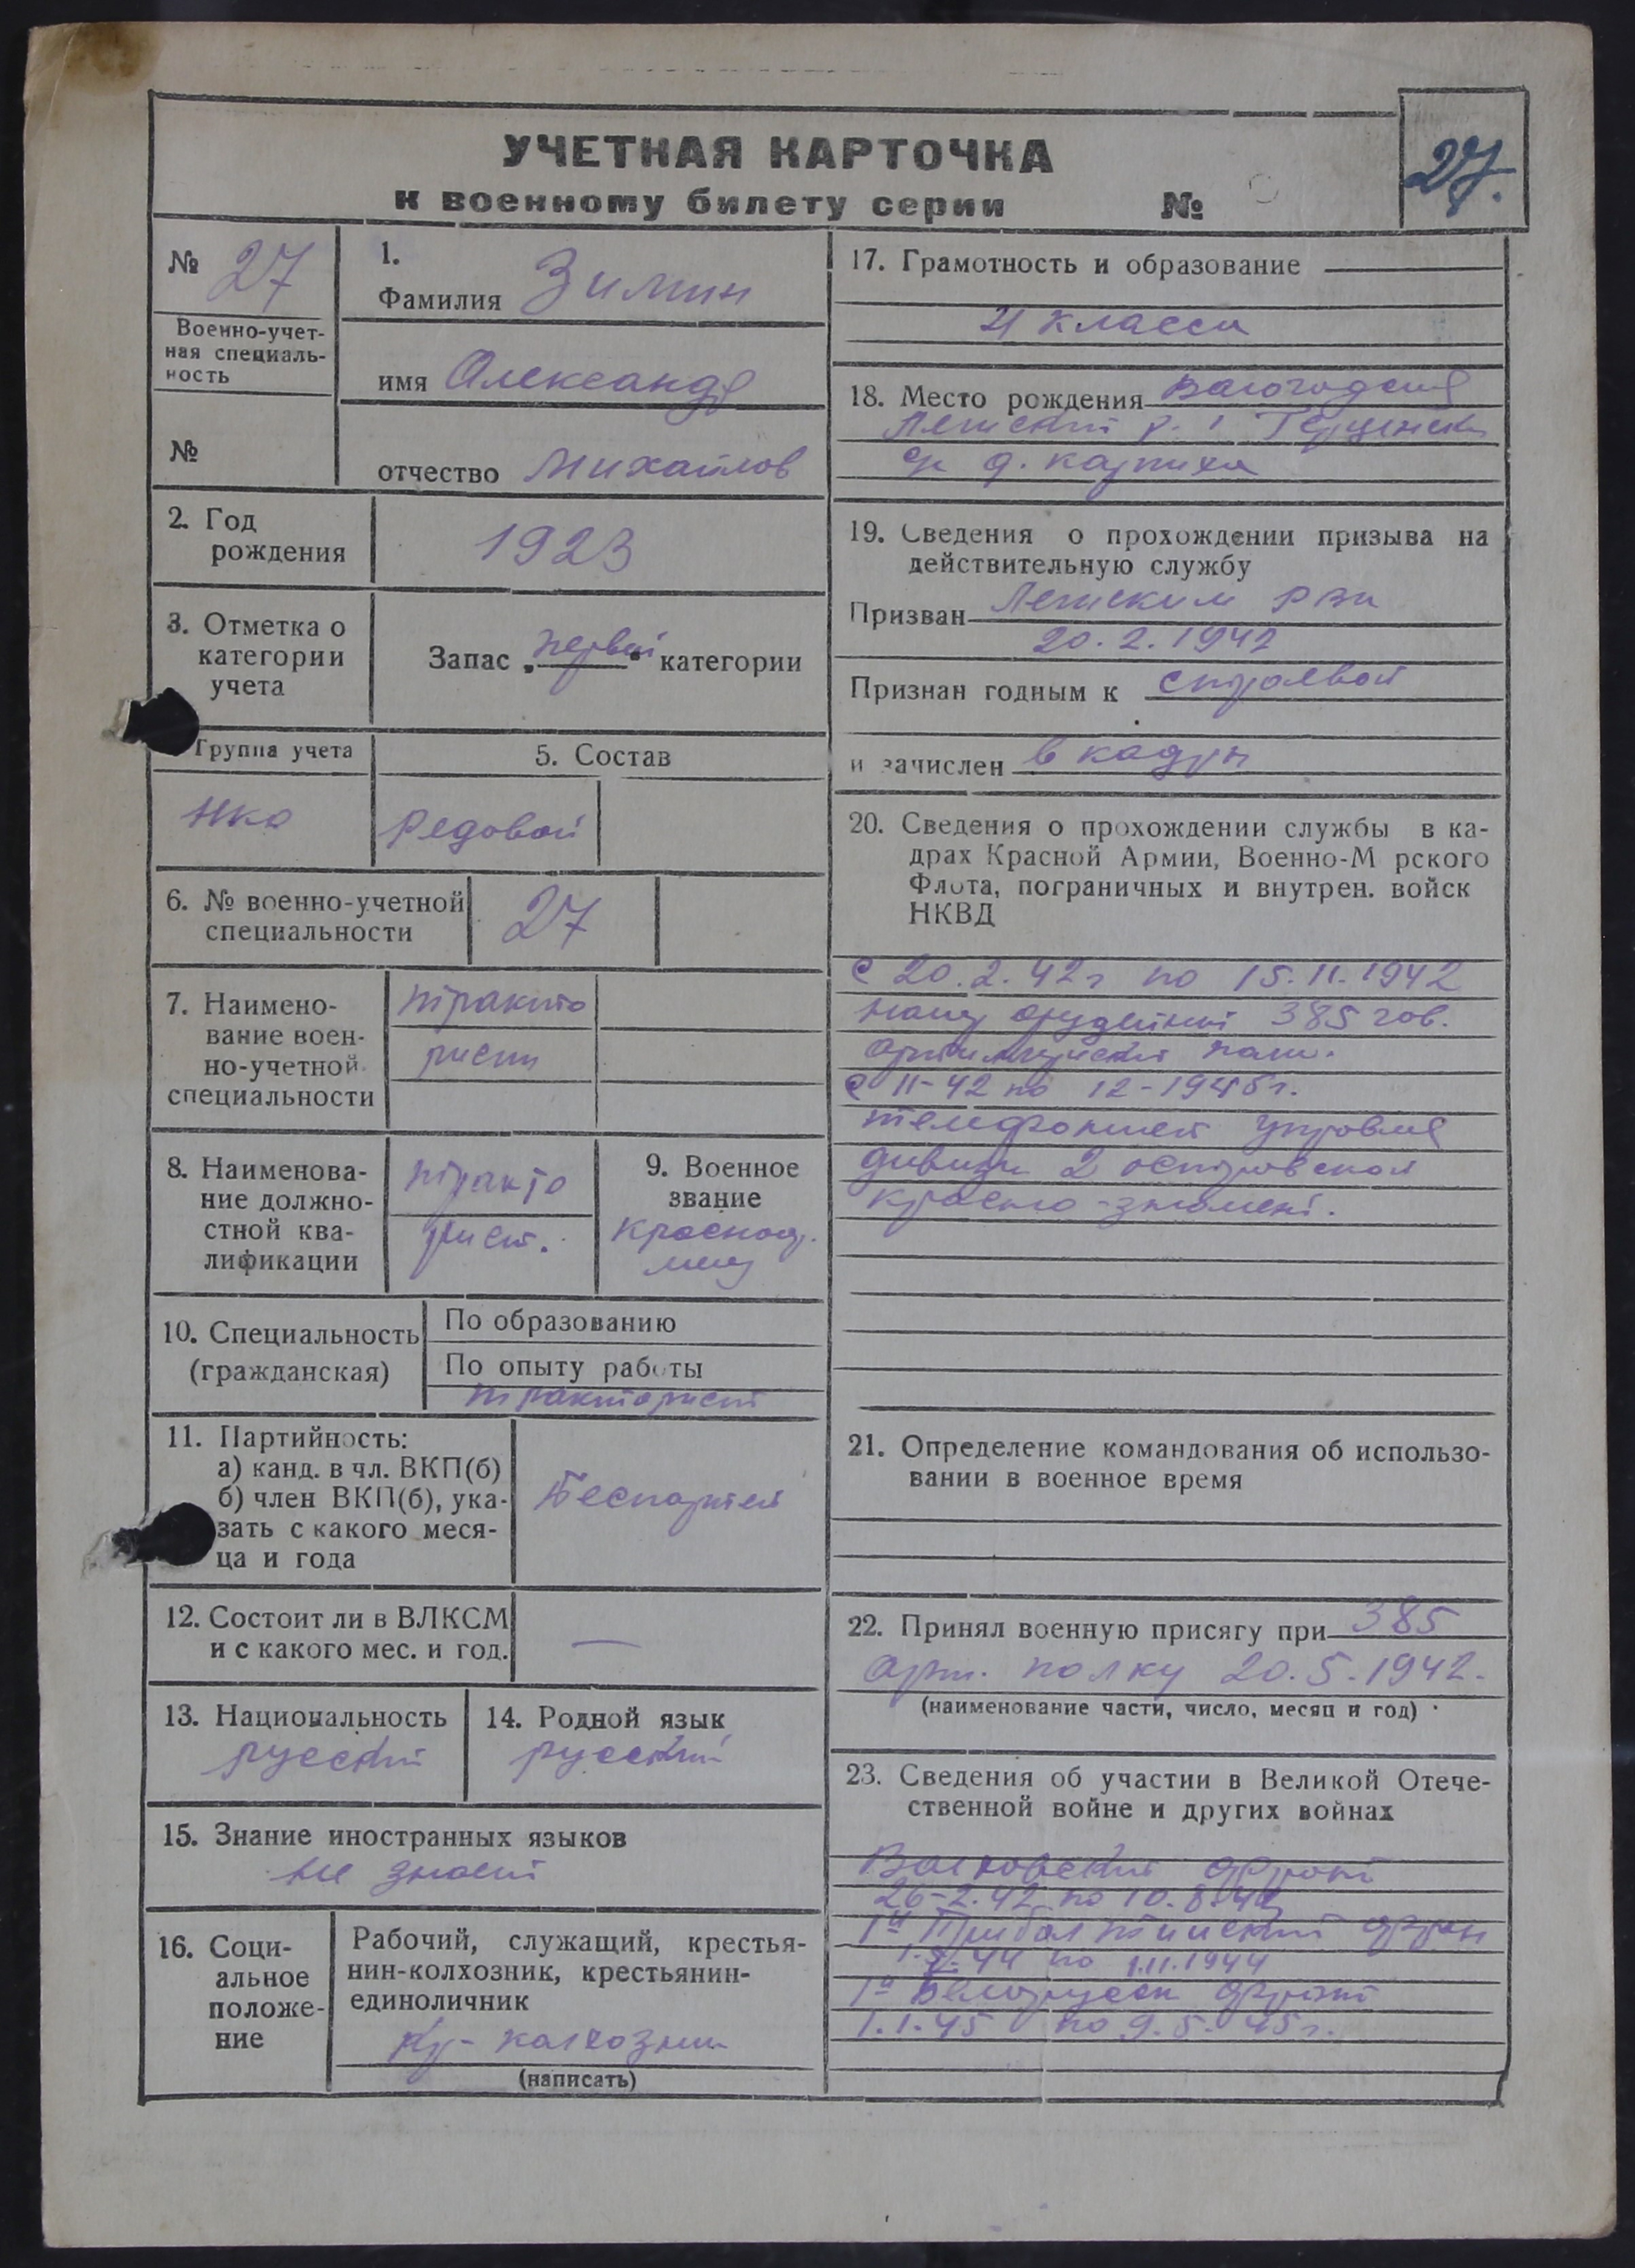 27.
УЧЕТНАЯ КАРТОЧКА
к военному билету серии №
№ 27
Военно-учет-
ная специаль-
ность
№
1.
Фамилия Зимин
имя Александр
отчество Михайлов
2. Год
рождения
1923
3. Отметка о
категории
учета
Запас „первой“ категории
Группа учета
НКО
5. Состав
Редовой
6. № военно-учетной
специальности
27
7. Наимено-
вание воен-
но-учетной
специальности
тракто
рист
8. Наименова-
ние должно-
стной ква-
лификации
тракто
рист.
9. Военное
звание
Красноар.
меец
10. Специальность
(гражданская)
По образованию
По опыту работы
тракторист
11. Партийность:
а) канд. в чл. ВКП(б)
б) член ВКП(б), ука-
зать с какого меся-
ца и года
12. Состоит ли в ВЛКСМ
и с какого мес. и год.
—
13. Национальность
русский
14. Родной язык
русский
15. Знание иностранных языков
не знает
16. Соци-
альное
положе-
ние
Рабочий, служащий, крестья-
нин-колхозник, крестьянин-
единоличник
Кр-колхозник
(написать)
17. Грамотность и образование
4 класса
18. Место рождения
р.
д.
19. Сведения о прохождении призыва на
действительную службу
Призван РВК
20.2.1942
Признан годным к строевой
и зачислен в кадры
20. Сведения о прохождении службы в ка-
драх Красной Армии, Военно-М рского
Флота, пограничных и внутрен. войск
НКВД
с 20.2.42г по 15.11.1942
орудейный 385 гов.
с 11-42 по 12-1945г.
телефонист
дивизи 2 островской
красно-знамен.
21. Определение командования об использо-
вании в военное время
22. Принял военную присягу при 385
арт. полку 20.5.1942.
(наименование части, число, месяц и год)
23. Сведения об участии в Великой Отече-
ственной войне и других войнах
Волховский фронт
26-2.42 по 10.8.
1й Прибалтийский фрон
44 по 1.11.1944
1й Белорусск фронт
1.1.45 по 9.5.45г.